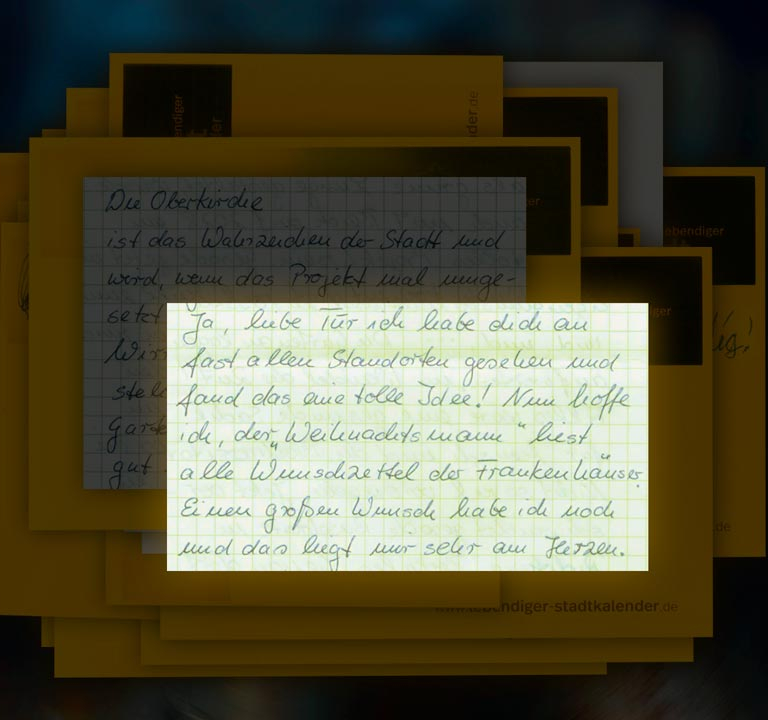 endiger
der.de
Die Oberkirche
ist das Wahrzeichen der Stadt und
wird, wenn das Projekt mal umge-
setzt
Wir
stel
gut
Ja, liebe Tür ich habe dich an
fast allen Standorten gesehen und
fand das eine tolle Idee! Nun hoffe
ich, der „Weihnachtsmann“ liest
alle Wunschzettel der Frankenhäuser.
Einen großen Wunsch habe ich noch
und das liegt mir sehr am Herzen.
ebendiger
www.lebendiger-stadtkalender.de